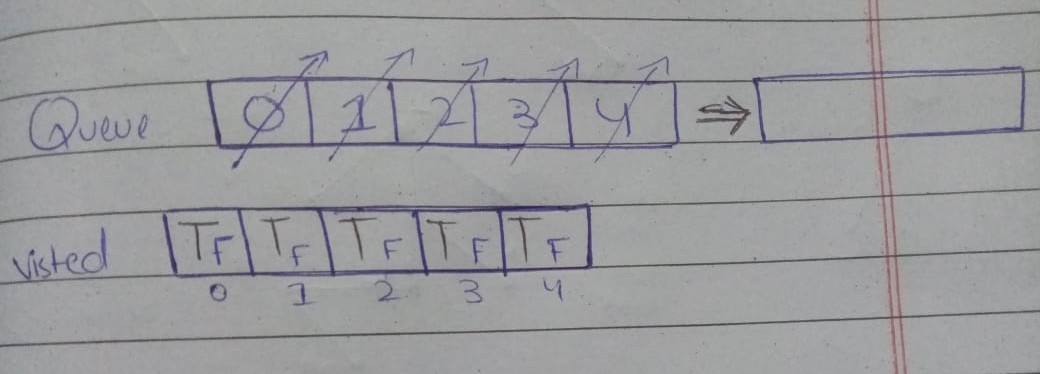 Queue 0 1 2 3 4 ⇒
visted TF TF TF TF TF
0 1 2 3 4